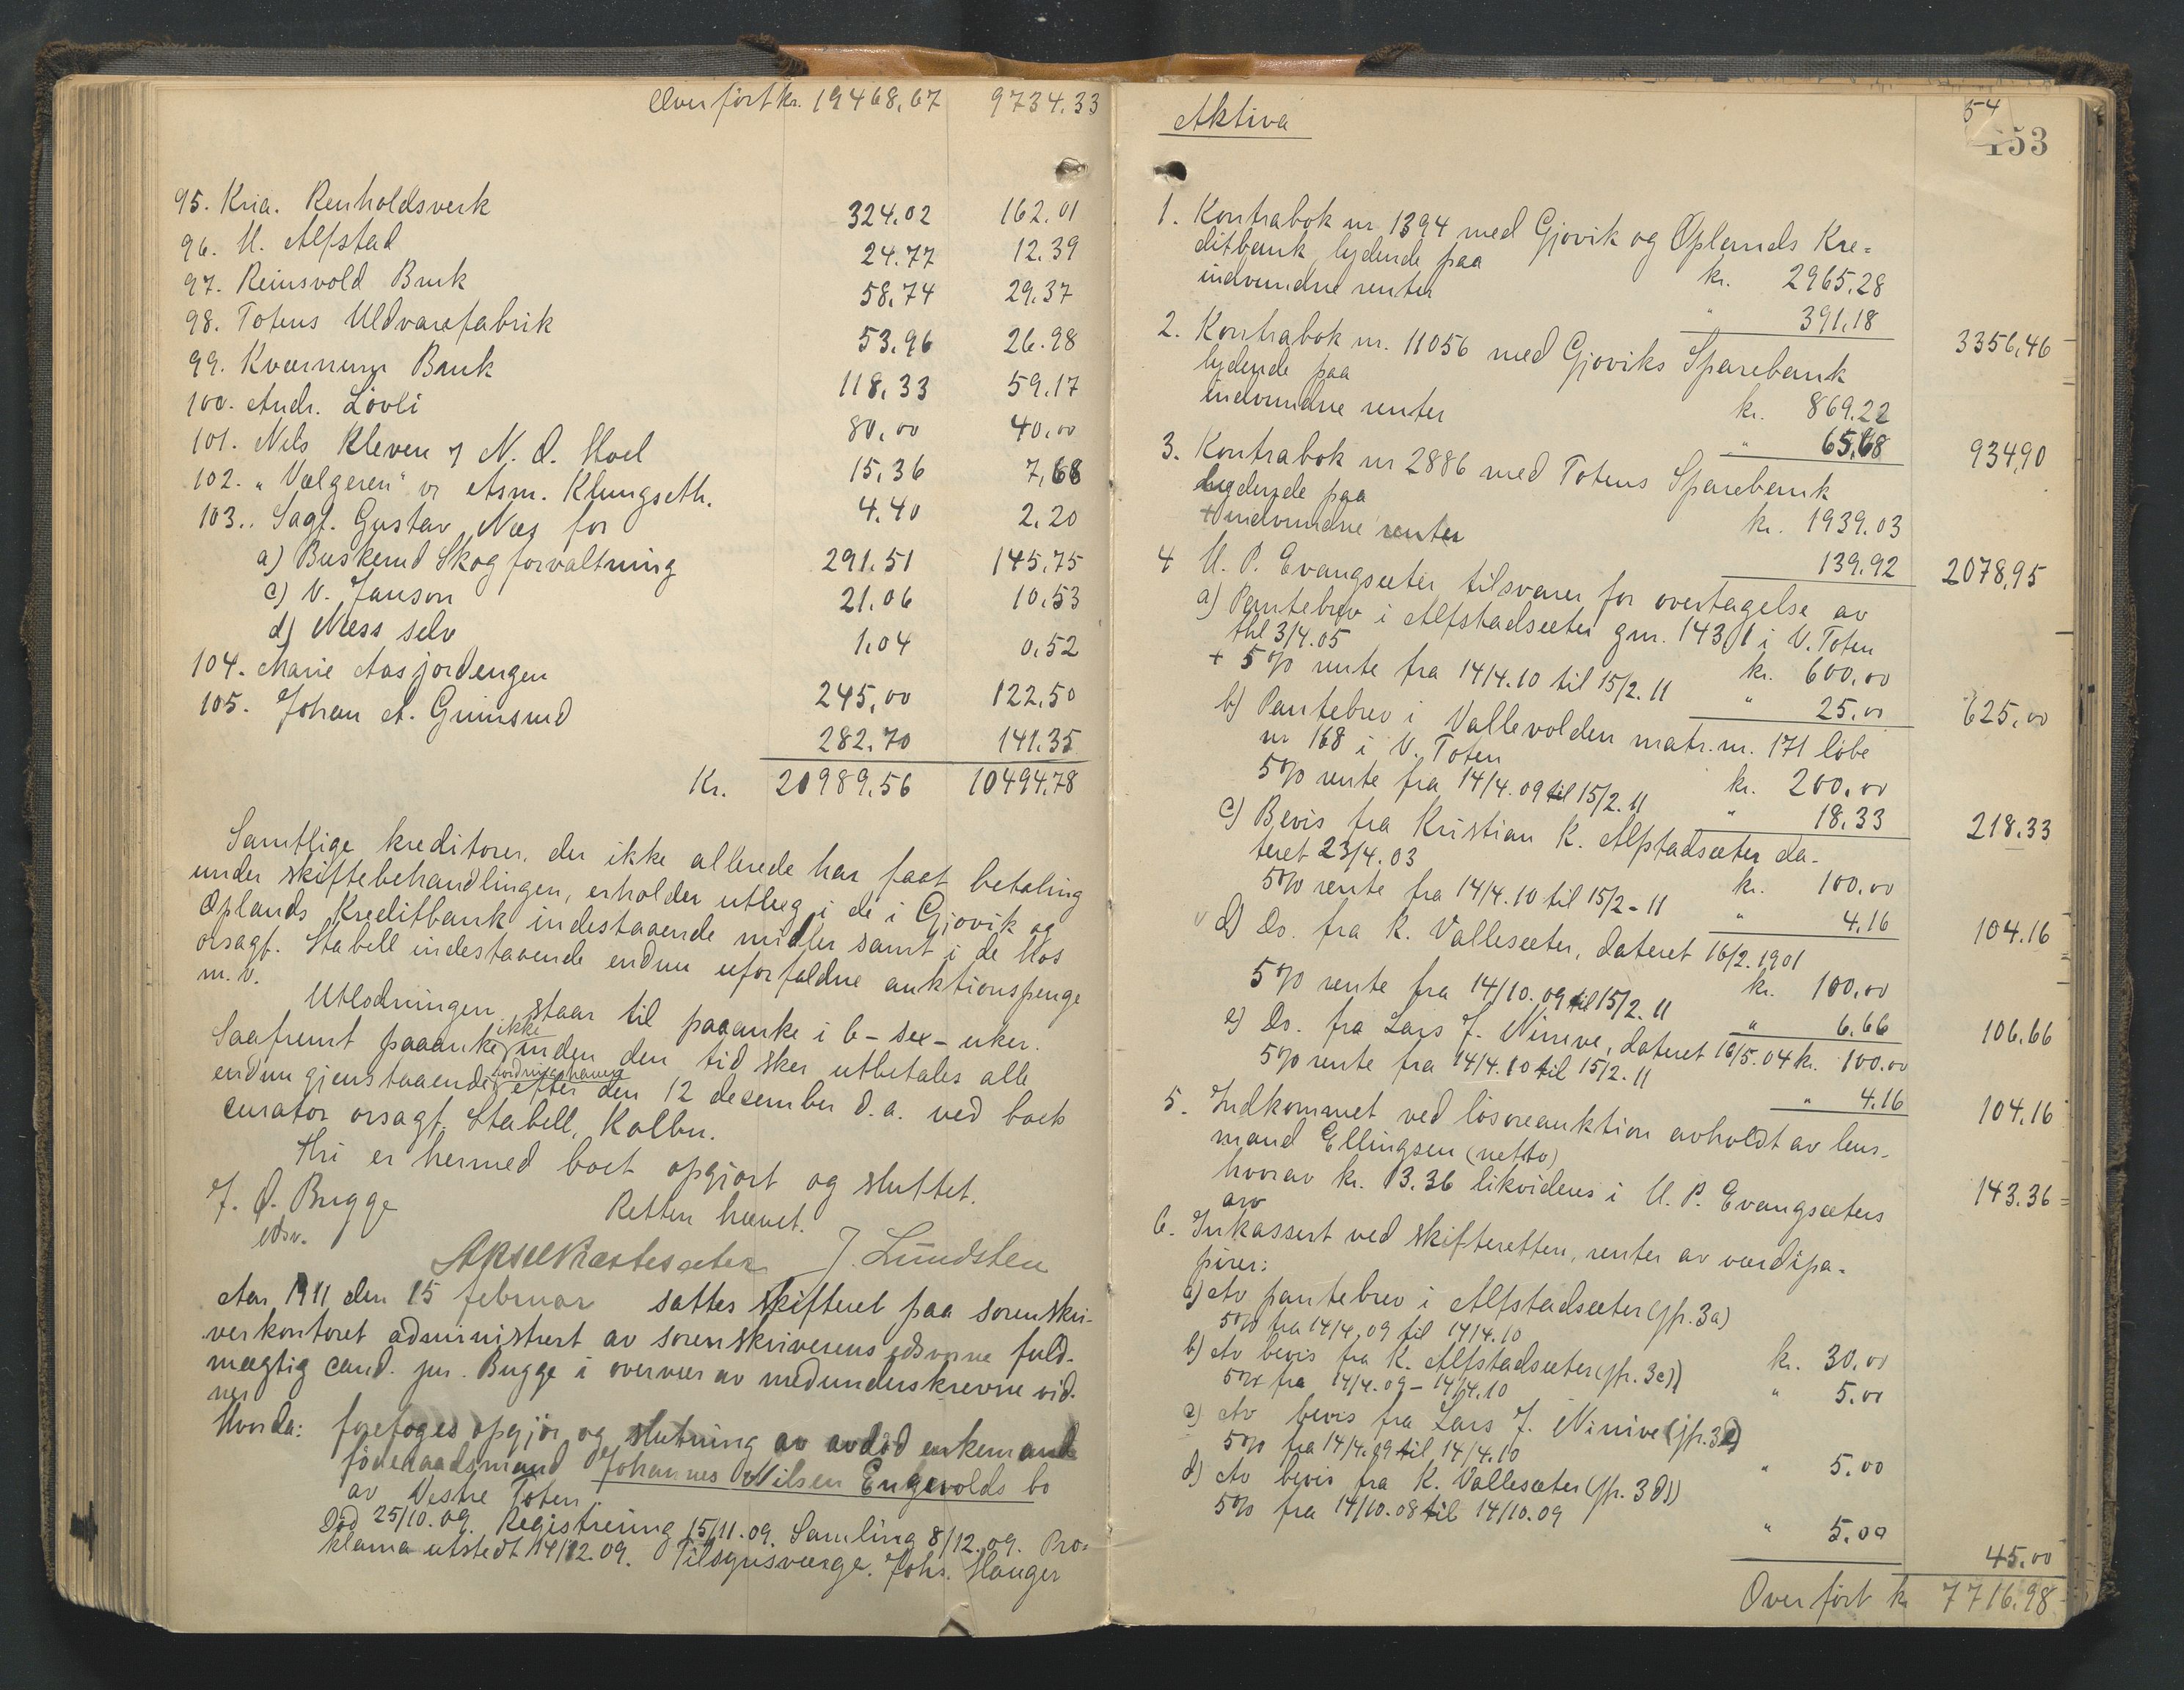 Overført kr. 19468.67 9734.33
95. Kria. Renholdsverk 324.02 162.01
96. U. Alfstad 24.77 12.39
97. Reinsvold Bruk 58.74 29.37
98. Totens Uldvarefabrik 53.96 26.98
99. Kværnum Bruk 118.33 59.17
100. Andr. Lövli 80.00 40.00
101. Nils Kleven v/ N. O. Hoel 15.36 7.68
102. "Vælgeren" v/ Asm. Klungseth. 4.40 2.20
103. Sagf. Gustav Næs for
a) Buskerud Skogforvaltning 291.51 145.75
c) V. Janson 21.06 10.53
d) Næss selv 1.04 0.52
104. Marie Aasjordengen 245.00 122.50
105. Johan A. Grimsrud 282.70 141.35
Kr. 20989.56 10494.78
Samtlige kreditorer, der ikke allerede har faat betaling
under skiftebehandlingen, erholder utlæg i de i Gjøvik og
Oplands Kreditbank indestaaende midler samt i de hos
orsagf. Stabell indestaaende endnu uforfaldne auktionspenge
m. v.
Utlodningen staar til paaanke i 6 - sex - uker.
Saafremt paaanke ikke inden den tid sker utbetales alle
endnu gjenstaaende lodninghavere efter den 12 desember d.a. ved boets
curator orsagf. Stabell, Kolbu.
Hri er hermed boet opgjort og sluttet.
Retten hævet.
J. Ø. Bugge
edsv.
Aksel Kvartesæter J. Lundsten
Aar 1911 den 15 februar sattes skifteret paa sorenskri-
verkontoret administrert av sorenskriverens edsvorne fuld-
mægtig cand. jur. Bugge i overvær av medunderskrevne vid-
ner
Hvorda: foretoges opgjör og slutning av avdöd enkemand
föderaadsmand Johannes Nilsen Engevolds bo
av Vestre Toten.
Död 25/10.09. Registrering 15/11.09. Samling 8/12.09. Pro-
klama utstedt 14/12.09. Tilsynsværge. Johs. Hauger
54
153
Aktiva
1. Kontrabok nr 1394 med Gjøvik og Oplands Kre-
ditbank lydende paa kr. 2965.28
indvundne renter " 391.18 3356.46
2. Kontrabok nr. 11056 med Gjøviks Sparebank
lydende paa kr. 869.22
indvundne renter " 65.68 934.90
3. Kontrabok nr 2886 med Totens Sparebank
lydende paa kr. 1939.03
+ indvundne renter 139.92 2078.95
4 U. P. Evangsæter tilsvarer for overtagelse av
a) Pantebrev i Alfstadsæter gnr. 143/1 i V. Toten
thl 3/4.05 kr. 600.00
+ 5 % rente fra 14/4.10 til 15/2.11 " 25.00 625.00
b) Pantebrev i Vallevolden matr.nr. 171 löbe
nr 168 i V. Toten kr. 200.00
5 % rente fra 14/4.09 til 15/2.11 " 18.33 218.33
c) Bevis fra Kristian K. Alfstadsæter da-
teret 23/4.03 kr. 100.00
5% rente fra 14/4.10 til 15/2-11 " 4.16 104.16
v d) Do. fra K. Vallesæter, dateret 16/2.1901 kr. 100.00
5 % rente fra 14/10.09 til 15/2.11 " 6.66 106.66
e) Do. fra Lars J. Ninive, dateret 16/5.04 kr. 100.00
5% rente fra 14/4.10 til 15/2.11 " 4.16 104.16
5. Indkommet ved lösøreauktion avholdt av lens-
mand Ellingsen (netto) 143.36
hvorav kr. 13.36 likvideres i U. P. Evangsæters
arv
6. Inkassert ved skifteretten, renter av værdipa-
pirer:
a) Av pantebrev i Alfstadsæter (jfr. 3a)
5% fra 14/4.09 til 14/4.10 kr. 30.00
b) Av bevis fra K. Alfstadsæter (jfr. 3c))
5% fra 14/4.09 - 14/4.10 " 5.00
c) Av bevis fra Lars J. Ninive (jfr. 3e)
5% fra 14/4.09 til 14/4.10 " 5.00
d) Av bevis fra K. Vallesæter (jfr. 3d))
5% fra 14/10.08 til 14/10.09 " 5.00 45.00
Overført kr 7716.98